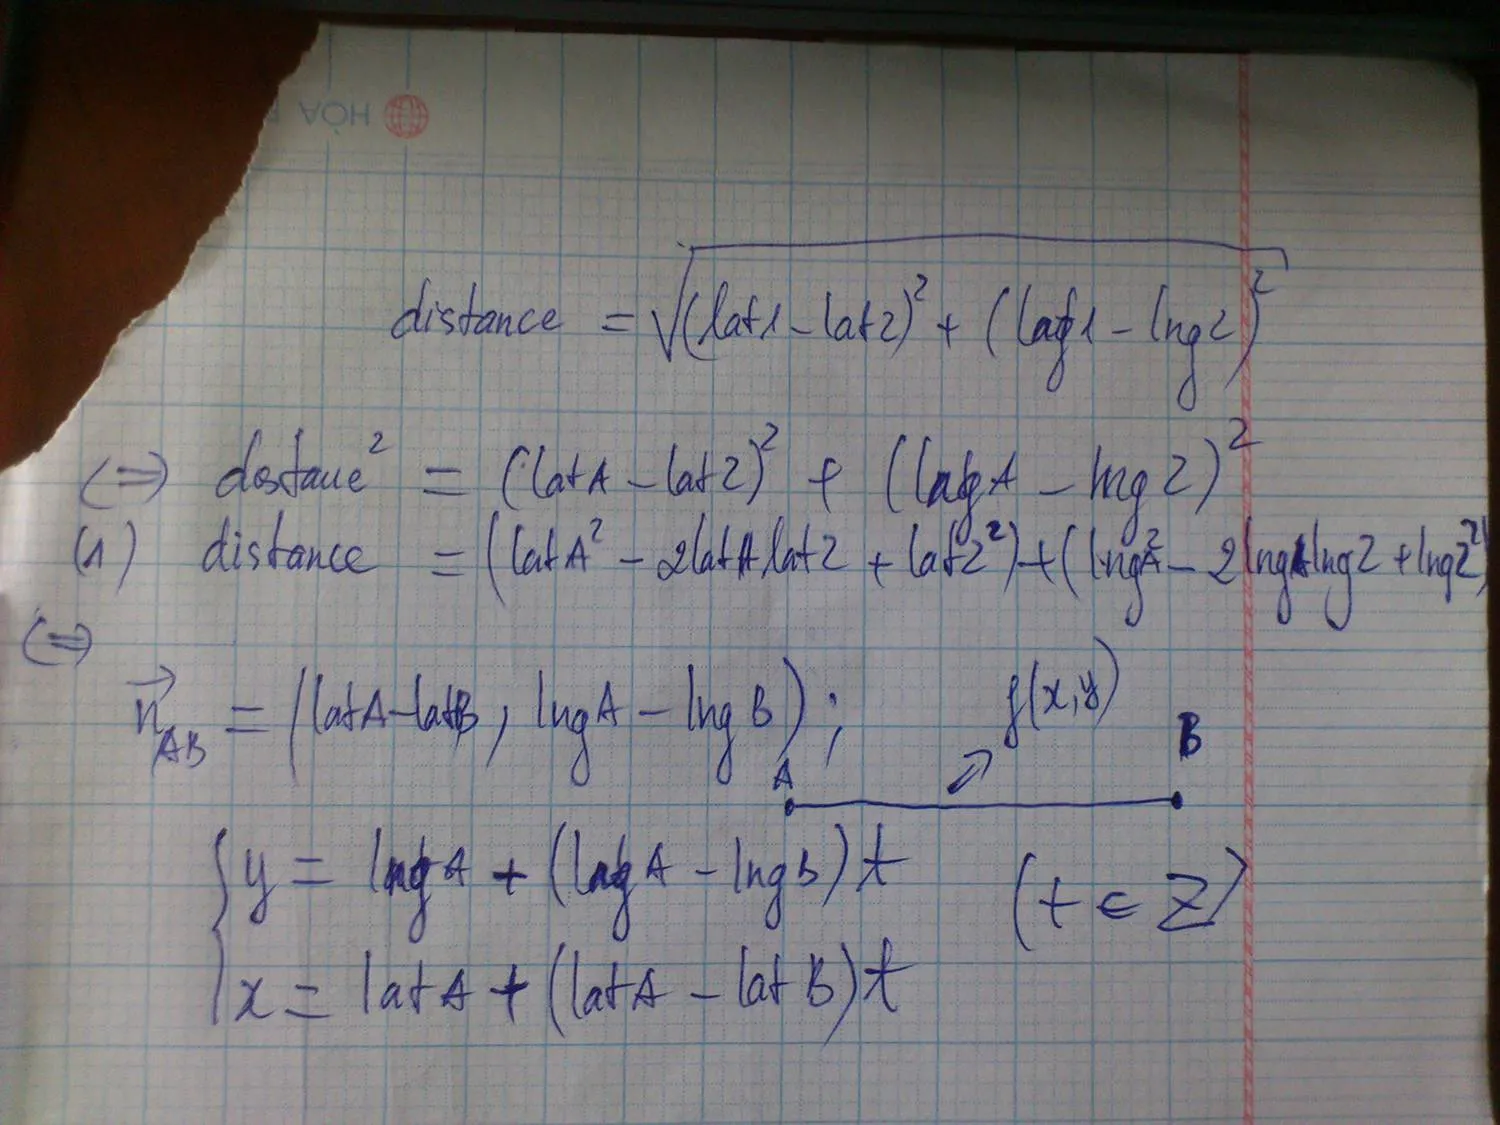 HÒA
distance = √(lat1 - lat2)² + (lng1 - lng2)²
(=) distance² = (latA - lat2)² + (lngA - lng2)²
(1) distance = (latA² - 2latA lat2 + lat2²) + (lngA² - 2lngA lng2 + lng2²)
(=)
n⃗AB = (latA - latB, lngA - lngB);
f(x,y)
A B
{ y = lngA + (lngA - lngB)t (t ∈ Z)
x = latA + (latA - latB)t